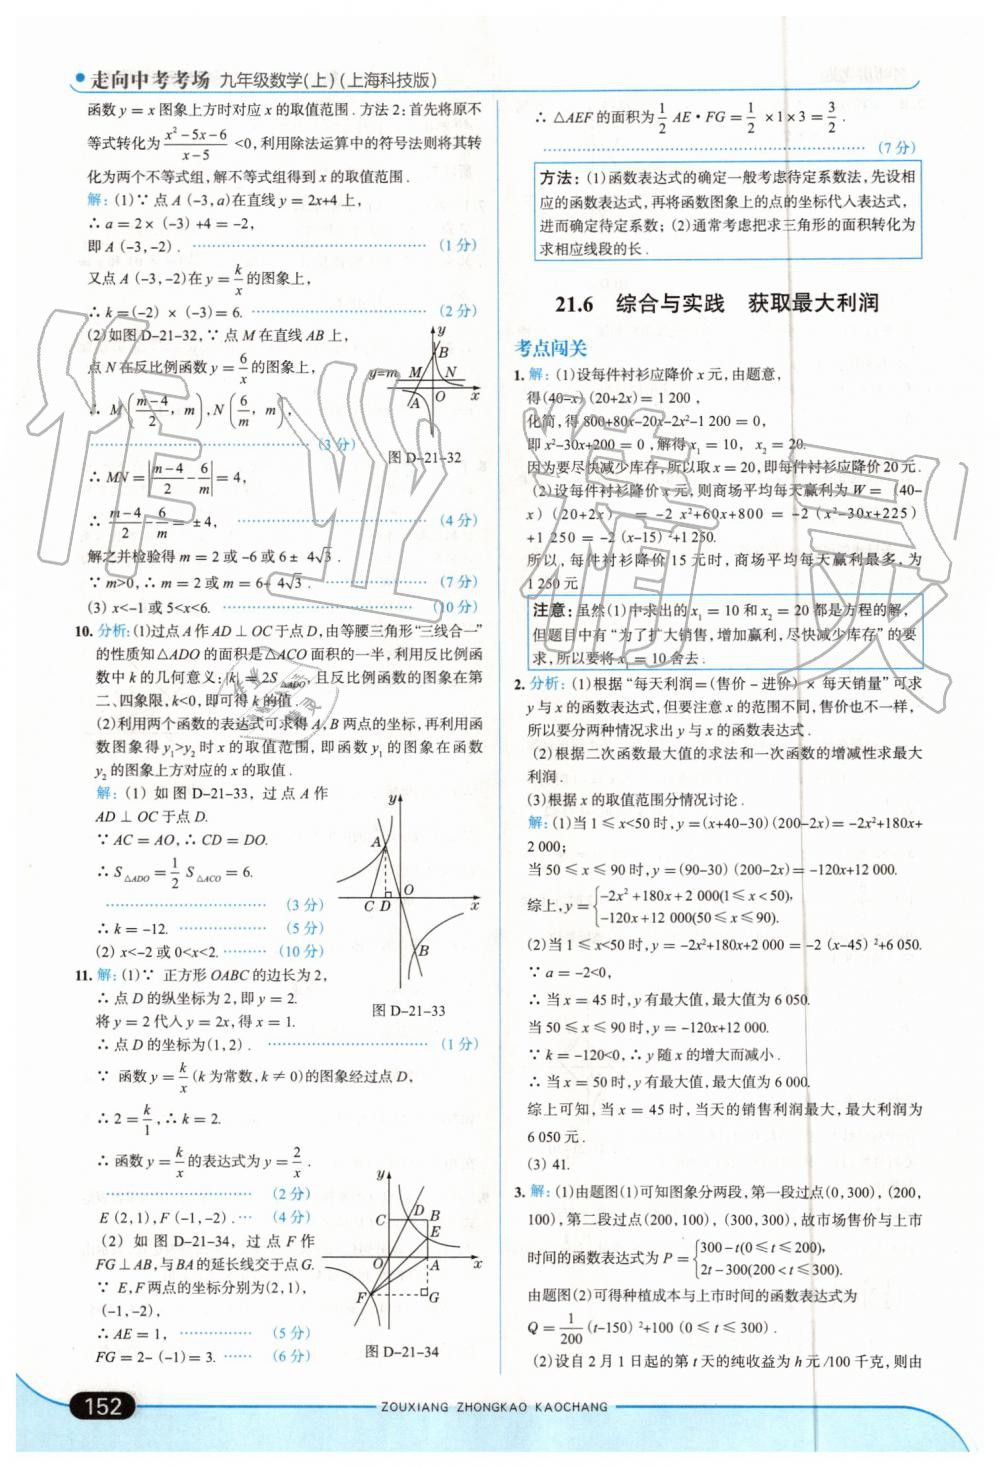 走向中考考场 九年级数学(上)(上海科技版)
函数 y = x 图象上方时对应 x 的取值范围. 方法 2: 首先将原不
等式转化为 (x²-5x-6)/(x-5) <0, 利用除法运算中的符号法则将其转
化为两个不等式组, 解不等式组得到 x 的取值范围.
解: (1)∵ 点 A (-3, a)在直线 y = 2x+4 上,
∴ a = 2× (-3) +4 = -2,
即 A (-3, -2). (1 分)
又点 A (-3, -2)在 y = k/x 的图象上,
∴ k = (-2) × (-3) = 6. (2 分)
(2)如图 D-21-32, ∵ 点 M 在直线 AB 上,
点 N 在反比例函数 y = 6/x 的图象上,
∴ M ((m-4)/2, m), N (6/m, m),
(3 分)
∴ MN = |(m-4)/2 - 6/m| = 4,
∴ (m-4)/2 - 6/m = ±4, (4 分)
解之并检验得 m = 2 或 -6 或 6± 4√3.
∵ m>0, ∴ m = 2 或 m = 6+ 4√3. (7 分)
(3) x<-1 或 5<x<6. (10 分)
y
B
y=m M N
A O x
图 D-21-32
10. 分析: (1)过点 A 作 AD ⊥ OC 于点 D, 由等腰三角形“三线合一”
的性质知 △ADO 的面积是 △ACO 面积的一半, 利用反比例函
数中 k 的几何意义: |k| = 2S△ADO, 且反比例函数的图象在第
二、四象限, k<0, 即可得 k 的值.
(2)利用两个函数的表达式可求得 A, B 两点的坐标, 再利用函
数图象得 y₁>y₂ 时 x 的取值范围, 即函数 y₁ 的图象在函数
y₂ 的图象上方对应的 x 的取值.
解: (1) 如图 D-21-33, 过点 A 作
AD ⊥ OC 于点 D.
∵ AC = AO, ∴ CD = DO.
∴ S△ADO = 1/2 S△ACO = 6.
(3 分)
∴ k = -12. (5 分)
(2) x<-2 或 0<x<2. (10 分)
y
A
O
C D x
B
图 D-21-33
11. 解: (1)∵ 正方形 OABC 的边长为 2,
∴ 点 D 的纵坐标为 2, 即 y = 2.
将 y = 2 代入 y = 2x, 得 x = 1.
∴ 点 D 的坐标为(1, 2). (1 分)
∵ 函数 y = k/x (k 为常数, k ≠ 0)的图象经过点 D,
∴ 2 = k/1, ∴ k = 2.
∴ 函数 y = k/x 的表达式为 y = 2/x.
(2 分)
E (2, 1), F (-1, -2). (4 分)
(2) 如图 D-21-34, 过点 F 作
FG ⊥ AB, 与 BA 的延长线交于点 G.
∵ E, F 两点的坐标分别为(2, 1),
(-1, -2),
∴ AE = 1, (5 分)
FG = 2- (-1) = 3. (6 分)
y
C D B
E
O A x
F G
图 D-21-34
∴ △AEF 的面积为 1/2 AE·FG = 1/2 ×1×3 = 3/2.
(7 分)
方法: (1)函数表达式的确定一般考虑待定系数法, 先设相
应的函数表达式, 再将函数图象上的点的坐标代入表达式,
进而确定待定系数; (2)通常考虑把求三角形的面积转化为
求相应线段的长.
21.6 综合与实践 获取最大利润
考点闯关
1. 解: (1)设每件衬衫应降价 x 元, 由题意,
得(40-x) (20+2x) = 1 200,
化简, 得 800+80x-20x-2x²-1 200 = 0,
即 x²-30x+200 = 0, 解得 x₁ = 10, x₂ = 20.
因为要尽快减少库存, 所以取 x = 20, 即每件衬衫应降价 20 元.
(2)设每件衬衫降价 x 元, 则商场平均每天赢利为 W = (40-
x) (20+2x) = -2 x²+60x+800 = -2 (x²-30x+225)
+1 250 = -2 (x-15) ²+1 250.
所以, 每件衬衫降价 15 元时, 商场平均每天赢利最多, 为
1 250 元
注意: 虽然(1)中求出的 x₁ = 10 和 x₂ = 20 都是方程的解,
但题目中有“为了扩大销售, 增加赢利, 尽快减少库存”的要
求, 所以要将 x₁ = 10 舍去.
2. 分析: (1)根据“每天利润=(售价 - 进价) × 每天销量”可求
y 与 x 的函数表达式, 但要注意 x 的范围不同, 售价也不一样,
所以要分两种情况求出 y 与 x 的函数表达式.
(2)根据二次函数最大值的求法和一次函数的增减性求最大
利润.
(3)根据 x 的取值范围分情况讨论.
解: (1)当 1 ≤ x<50 时, y = (x+40-30) (200-2x) = -2x²+180x+
2 000;
当 50 ≤ x ≤ 90 时, y = (90-30) (200-2x) = -120x+12 000.
综上, y = { -2x²+180x+2 000(1≤x<50),
-120x+12 000(50≤x≤90).
(2)当 1 ≤ x<50 时, y = -2x²+180x+2 000 = -2 (x-45) ²+6 050.
∵ a = -2<0,
∴ 当 x = 45 时, y 有最大值, 最大值为 6 050.
当 50 ≤ x ≤ 90 时, y = -120x+12 000.
∵ k = -120<0, ∴ y 随 x 的增大而减小.
∴ 当 x = 50 时, y 有最大值, 最大值为 6 000.
综上可知, 当 x = 45 时, 当天的销售利润最大, 最大利润为
6 050 元.
(3) 41.
3. 解: (1)由题图(1)可知图象分两段, 第一段过点(0, 300), (200,
100), 第二段过点(200, 100), (300, 300), 故市场售价与上市
时间的函数表达式为 P = { 300-t(0≤t≤200),
2t-300(200<t≤300).
由题图(2)可得种植成本与上市时间的函数表达式为
Q = 1/200 (t-150) ²+100 (0 ≤ t ≤ 300).
(2)设自 2 月 1 日起的第 t 天的纯收益为 h 元/100 千克, 则由
152
ZOUXIANG ZHONGKAO KAOCHANG
作业精灵